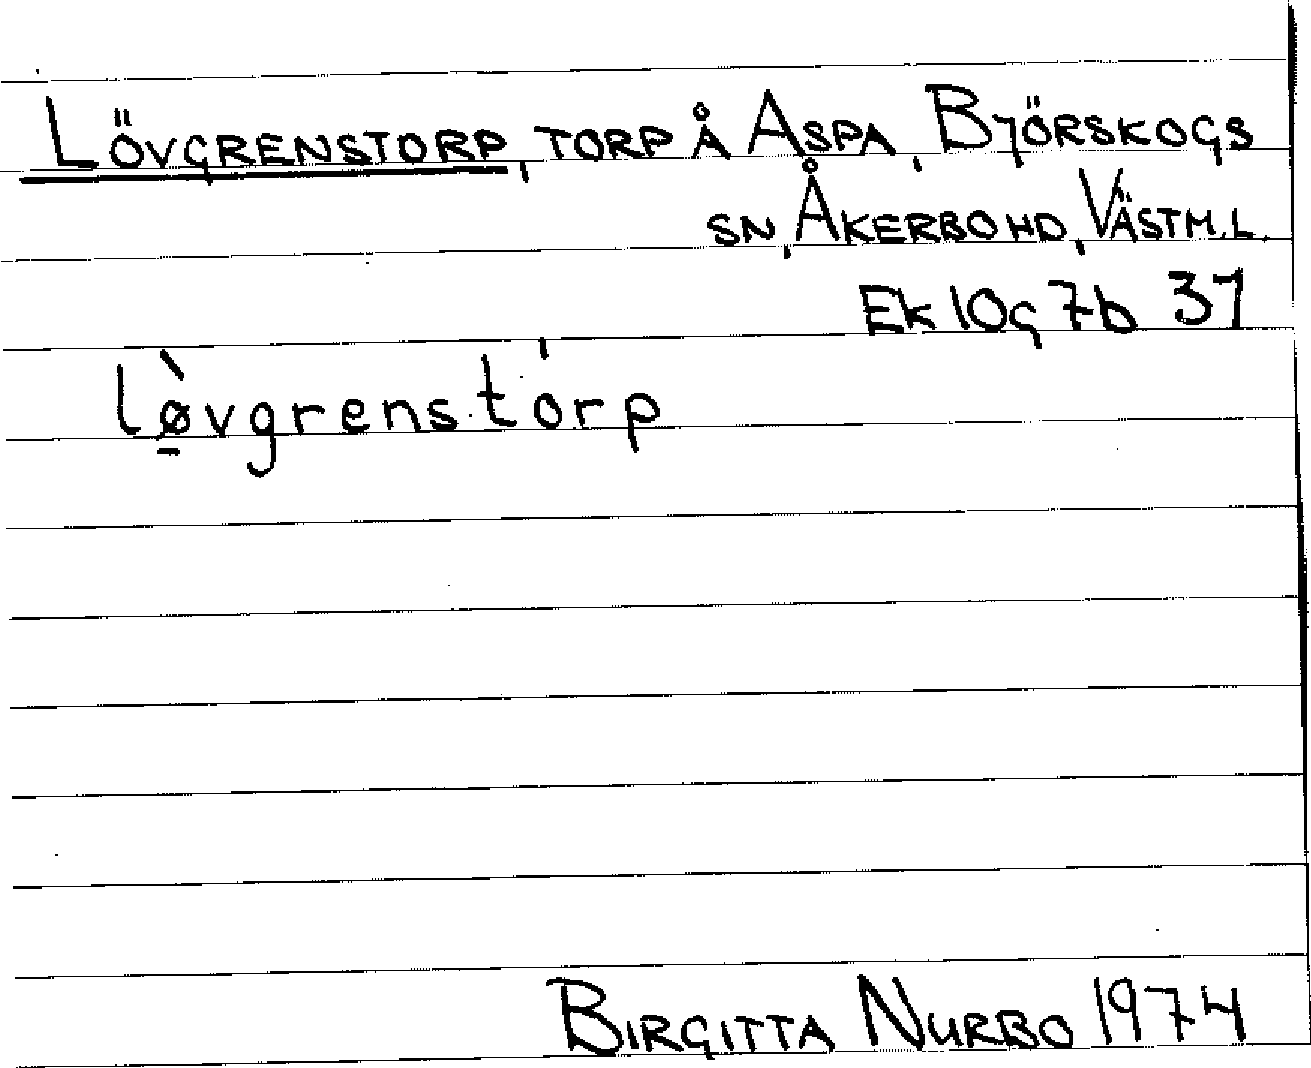 LÖVGRENSTORP, TORP Å ASPA, BJÖRSKOGS
SN, ÅKERBO HD, VÄSTM.L.
Ek 10g 7b 31
lø̠̀vgrens.tórp
BIRGITTA NURBO 1974